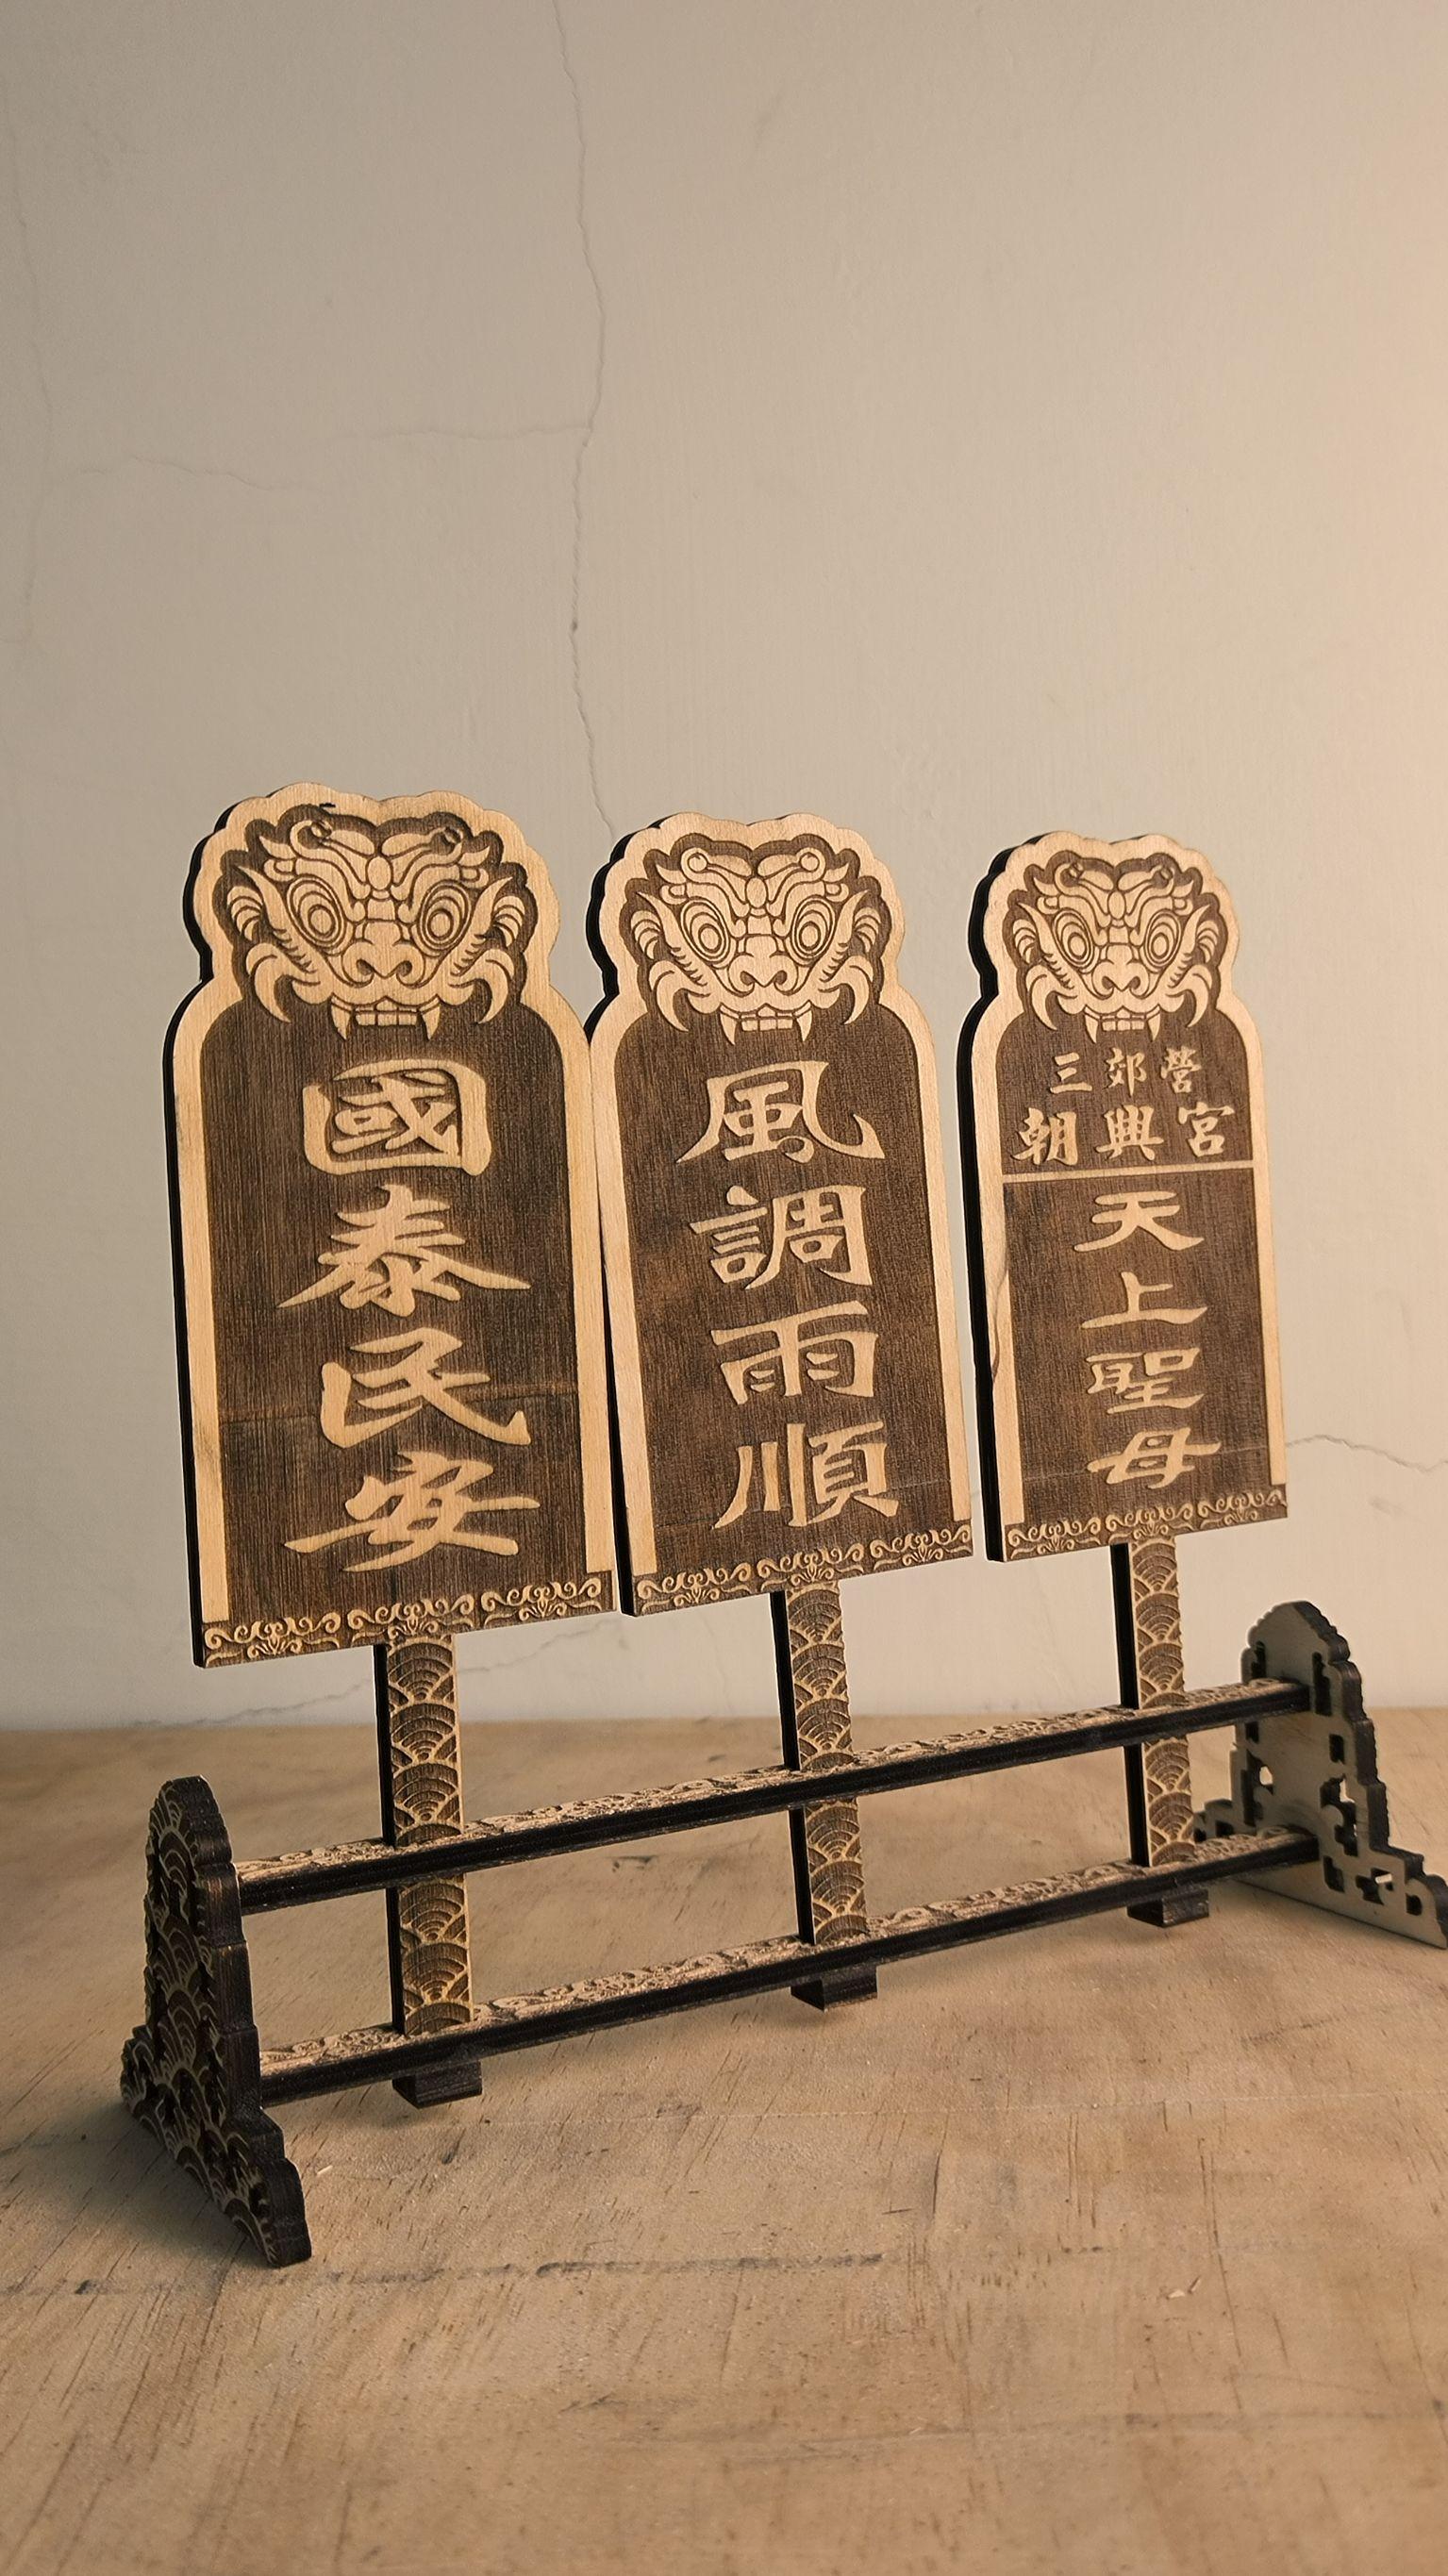 國泰民安
風調雨順
三郊營
朝興宮
天上聖母